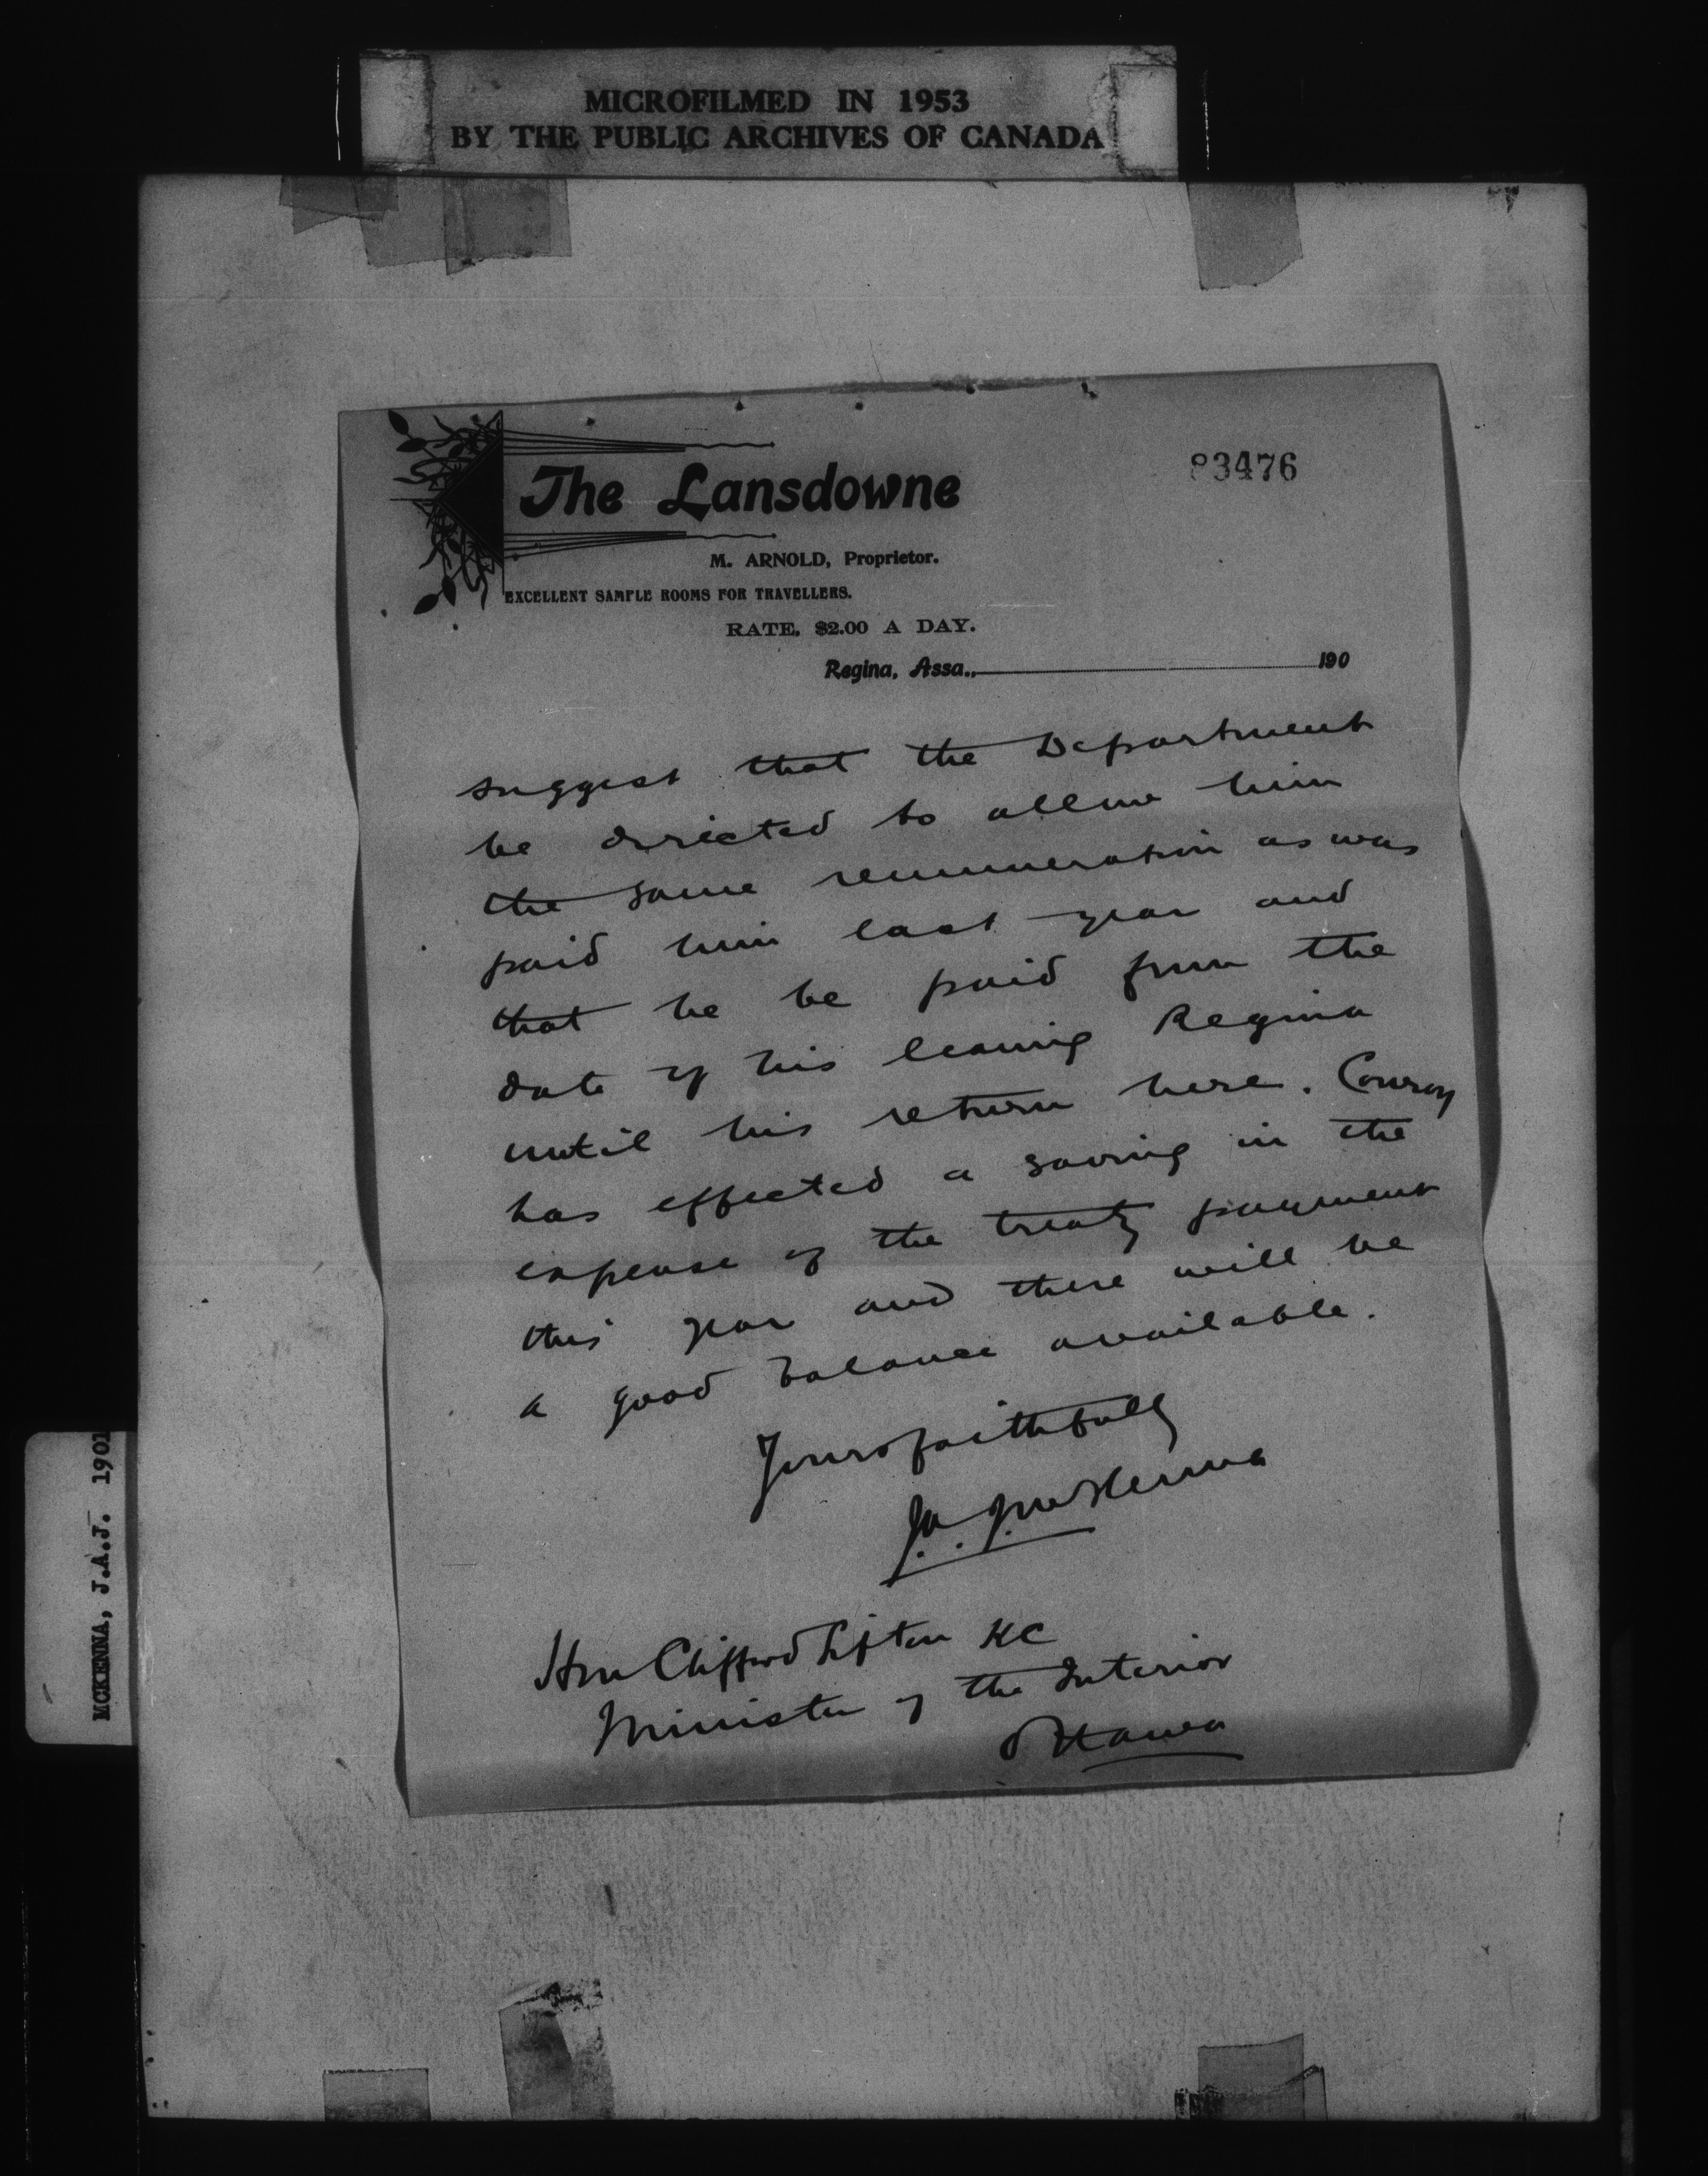 MICROFILMED IN 1953
BY THE PUBLIC ARCHIVES OF CANADA
83476
The Lansdowne
M. ARNOLD, Proprietor.
EXCELLENT SAMPLE ROOMS FOR TRAVELLERS.
RATE, $2.00 A DAY.
Regina, Assa., 190
suggest that the Department
be directed to allow him
the same remuneration as was
paid him last year and
that he be paid from the
date of his leaving Regina
until his return here. Conroy
has effected a saving in the
expense of the treaty payment
this year and there will be
a good balance available.
Yours faithfully
J.A.J. McKenna
Hon Clifford Sifton KC
Minister of the Interior
Ottawa
MCKENNA, J.A.J. 1901